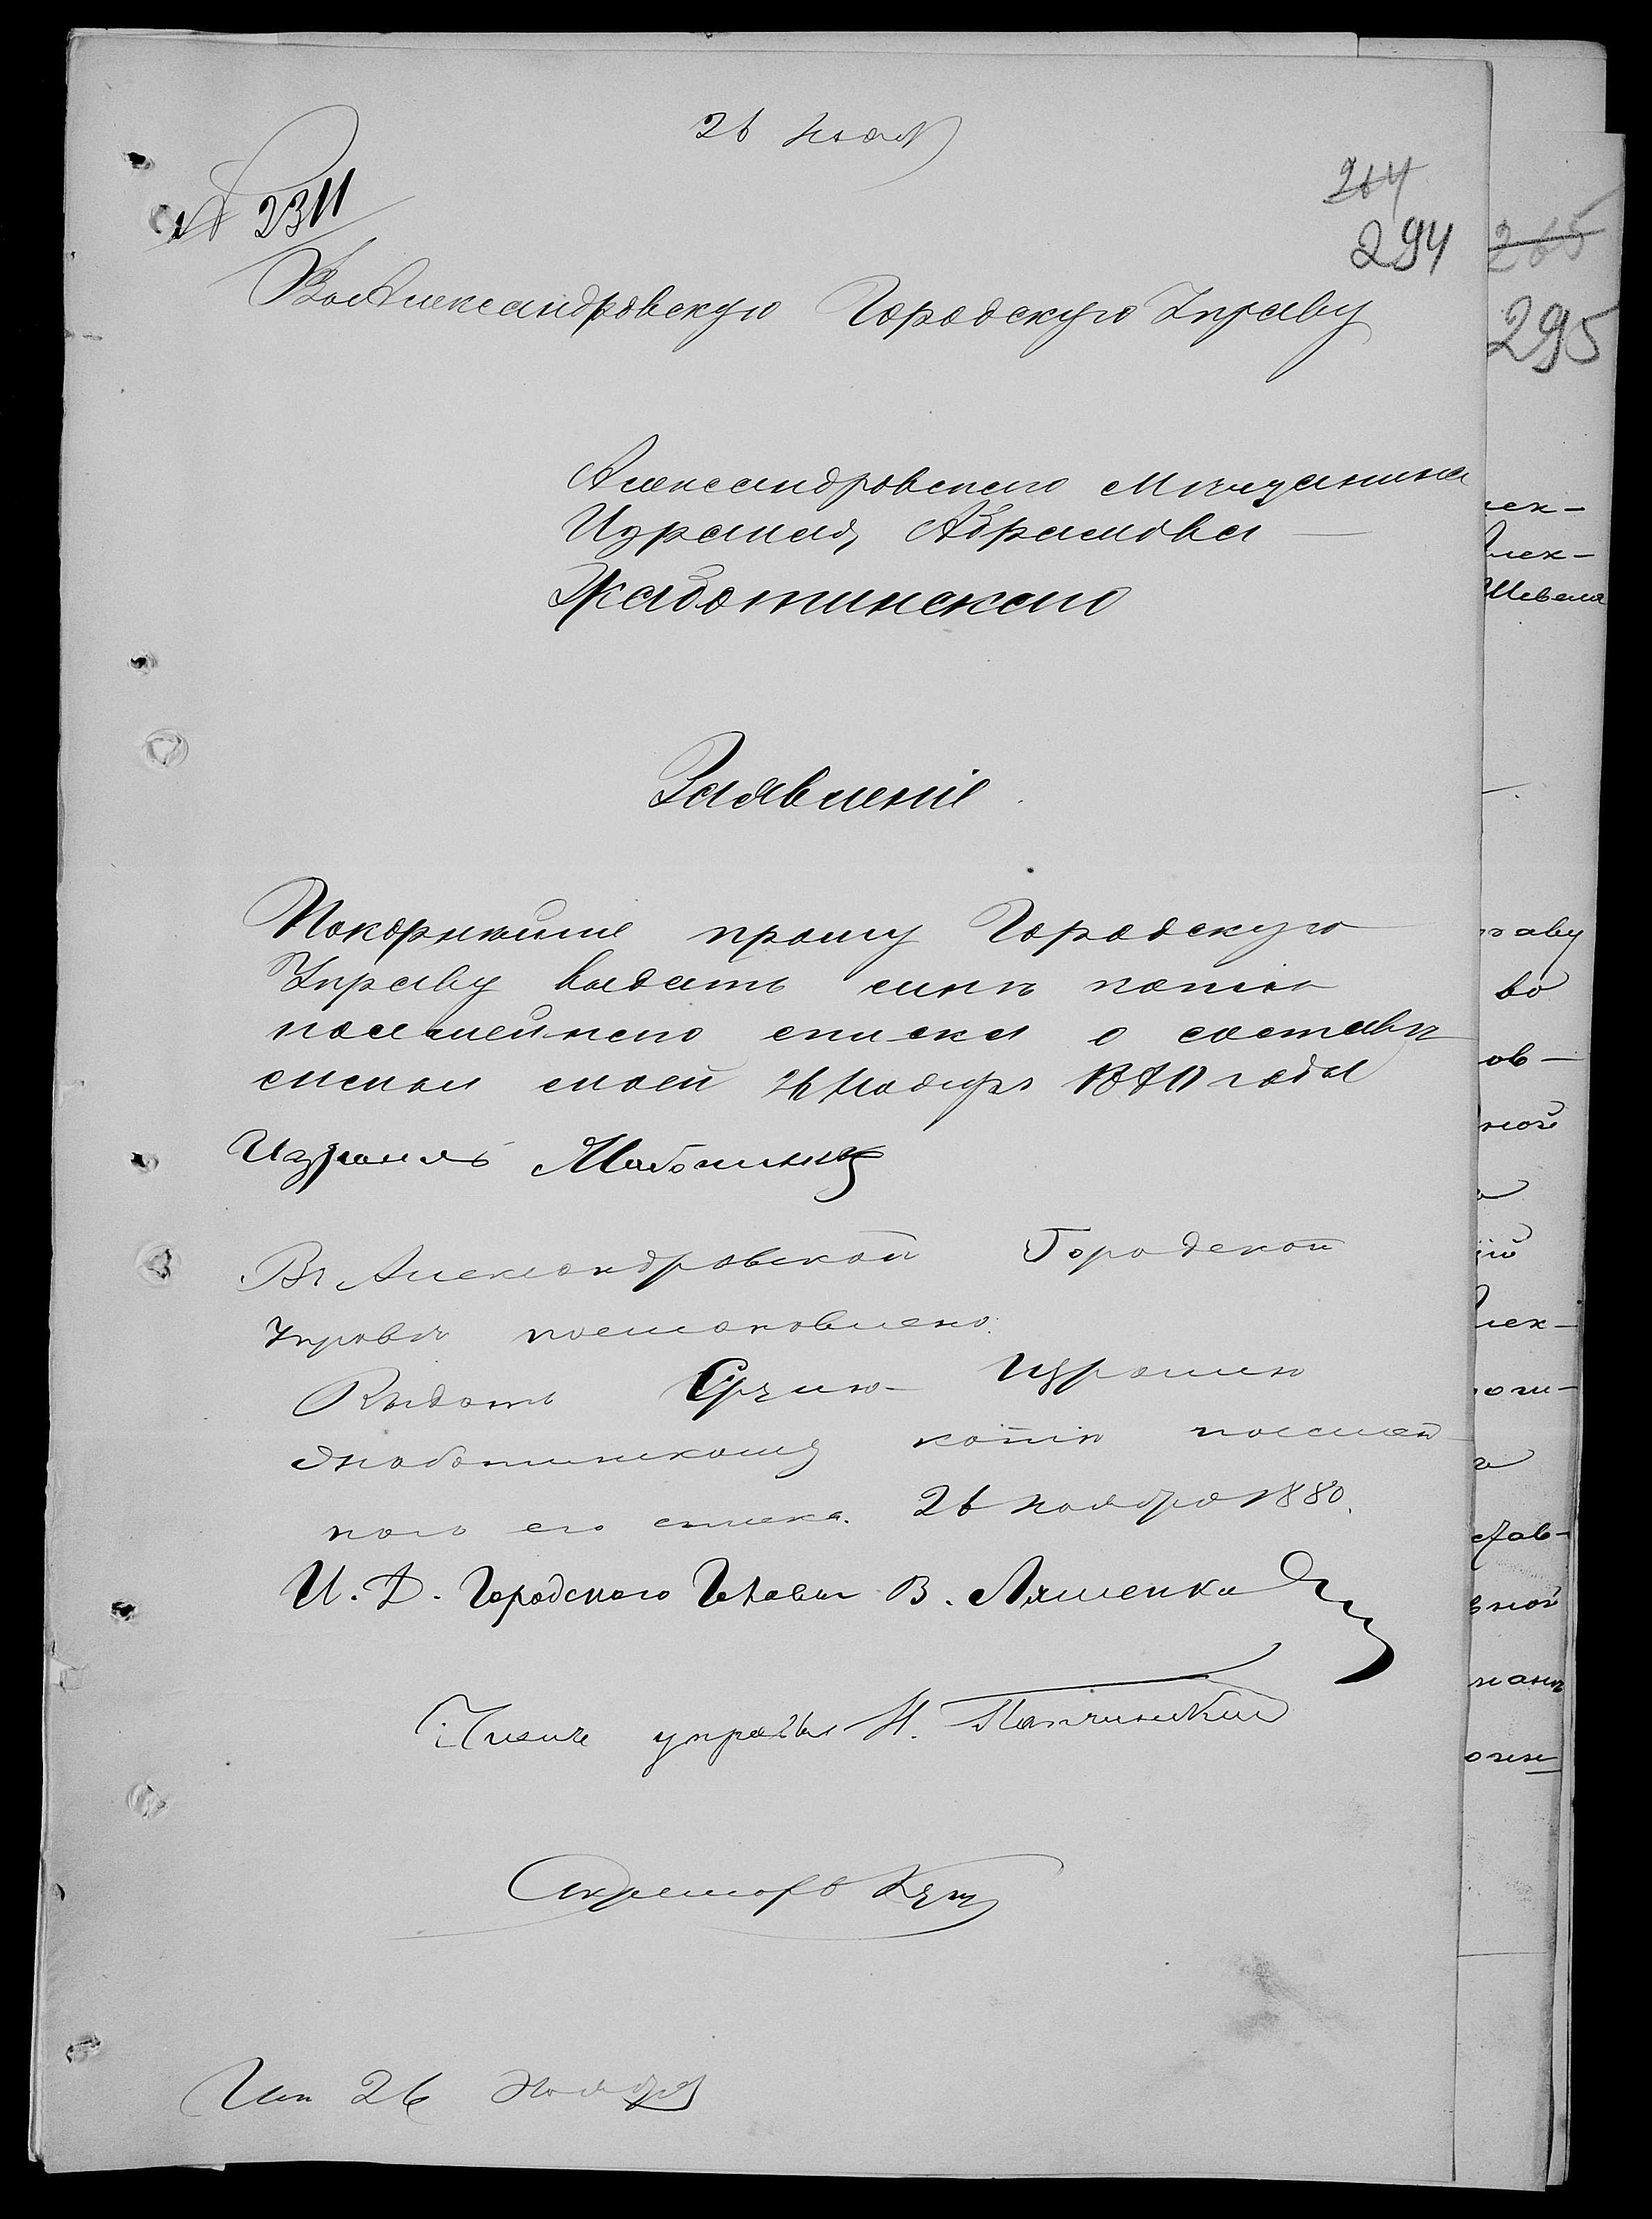 26 Нояб
264
№ 2311
294
Во Александровскую Городскую Управу
Александровскаго Мѣщанина
Израиля Абрамова
Жаботинскаго
Заявленіе
Покорнѣйше прошу Городскую
Управу выдать мнѣ копію
посемейнаго списка о составѣ
семьи моей 26 Ноября 1880 года
Израиль Жаботинский
Въ Александровской Городской
Управѣ постановлено:
Выдать Израилю
Жаботинскому копію посемей-
наго его списка. 26 ноября 1880.
И. Д. Городскаго Головы В. Ляшенко
Членъ управы Н.
Секретарь
Исп 26 Ноября
265
295
лек-
Шевеля
раву
во
ов-
ной
ій
лек-
став-